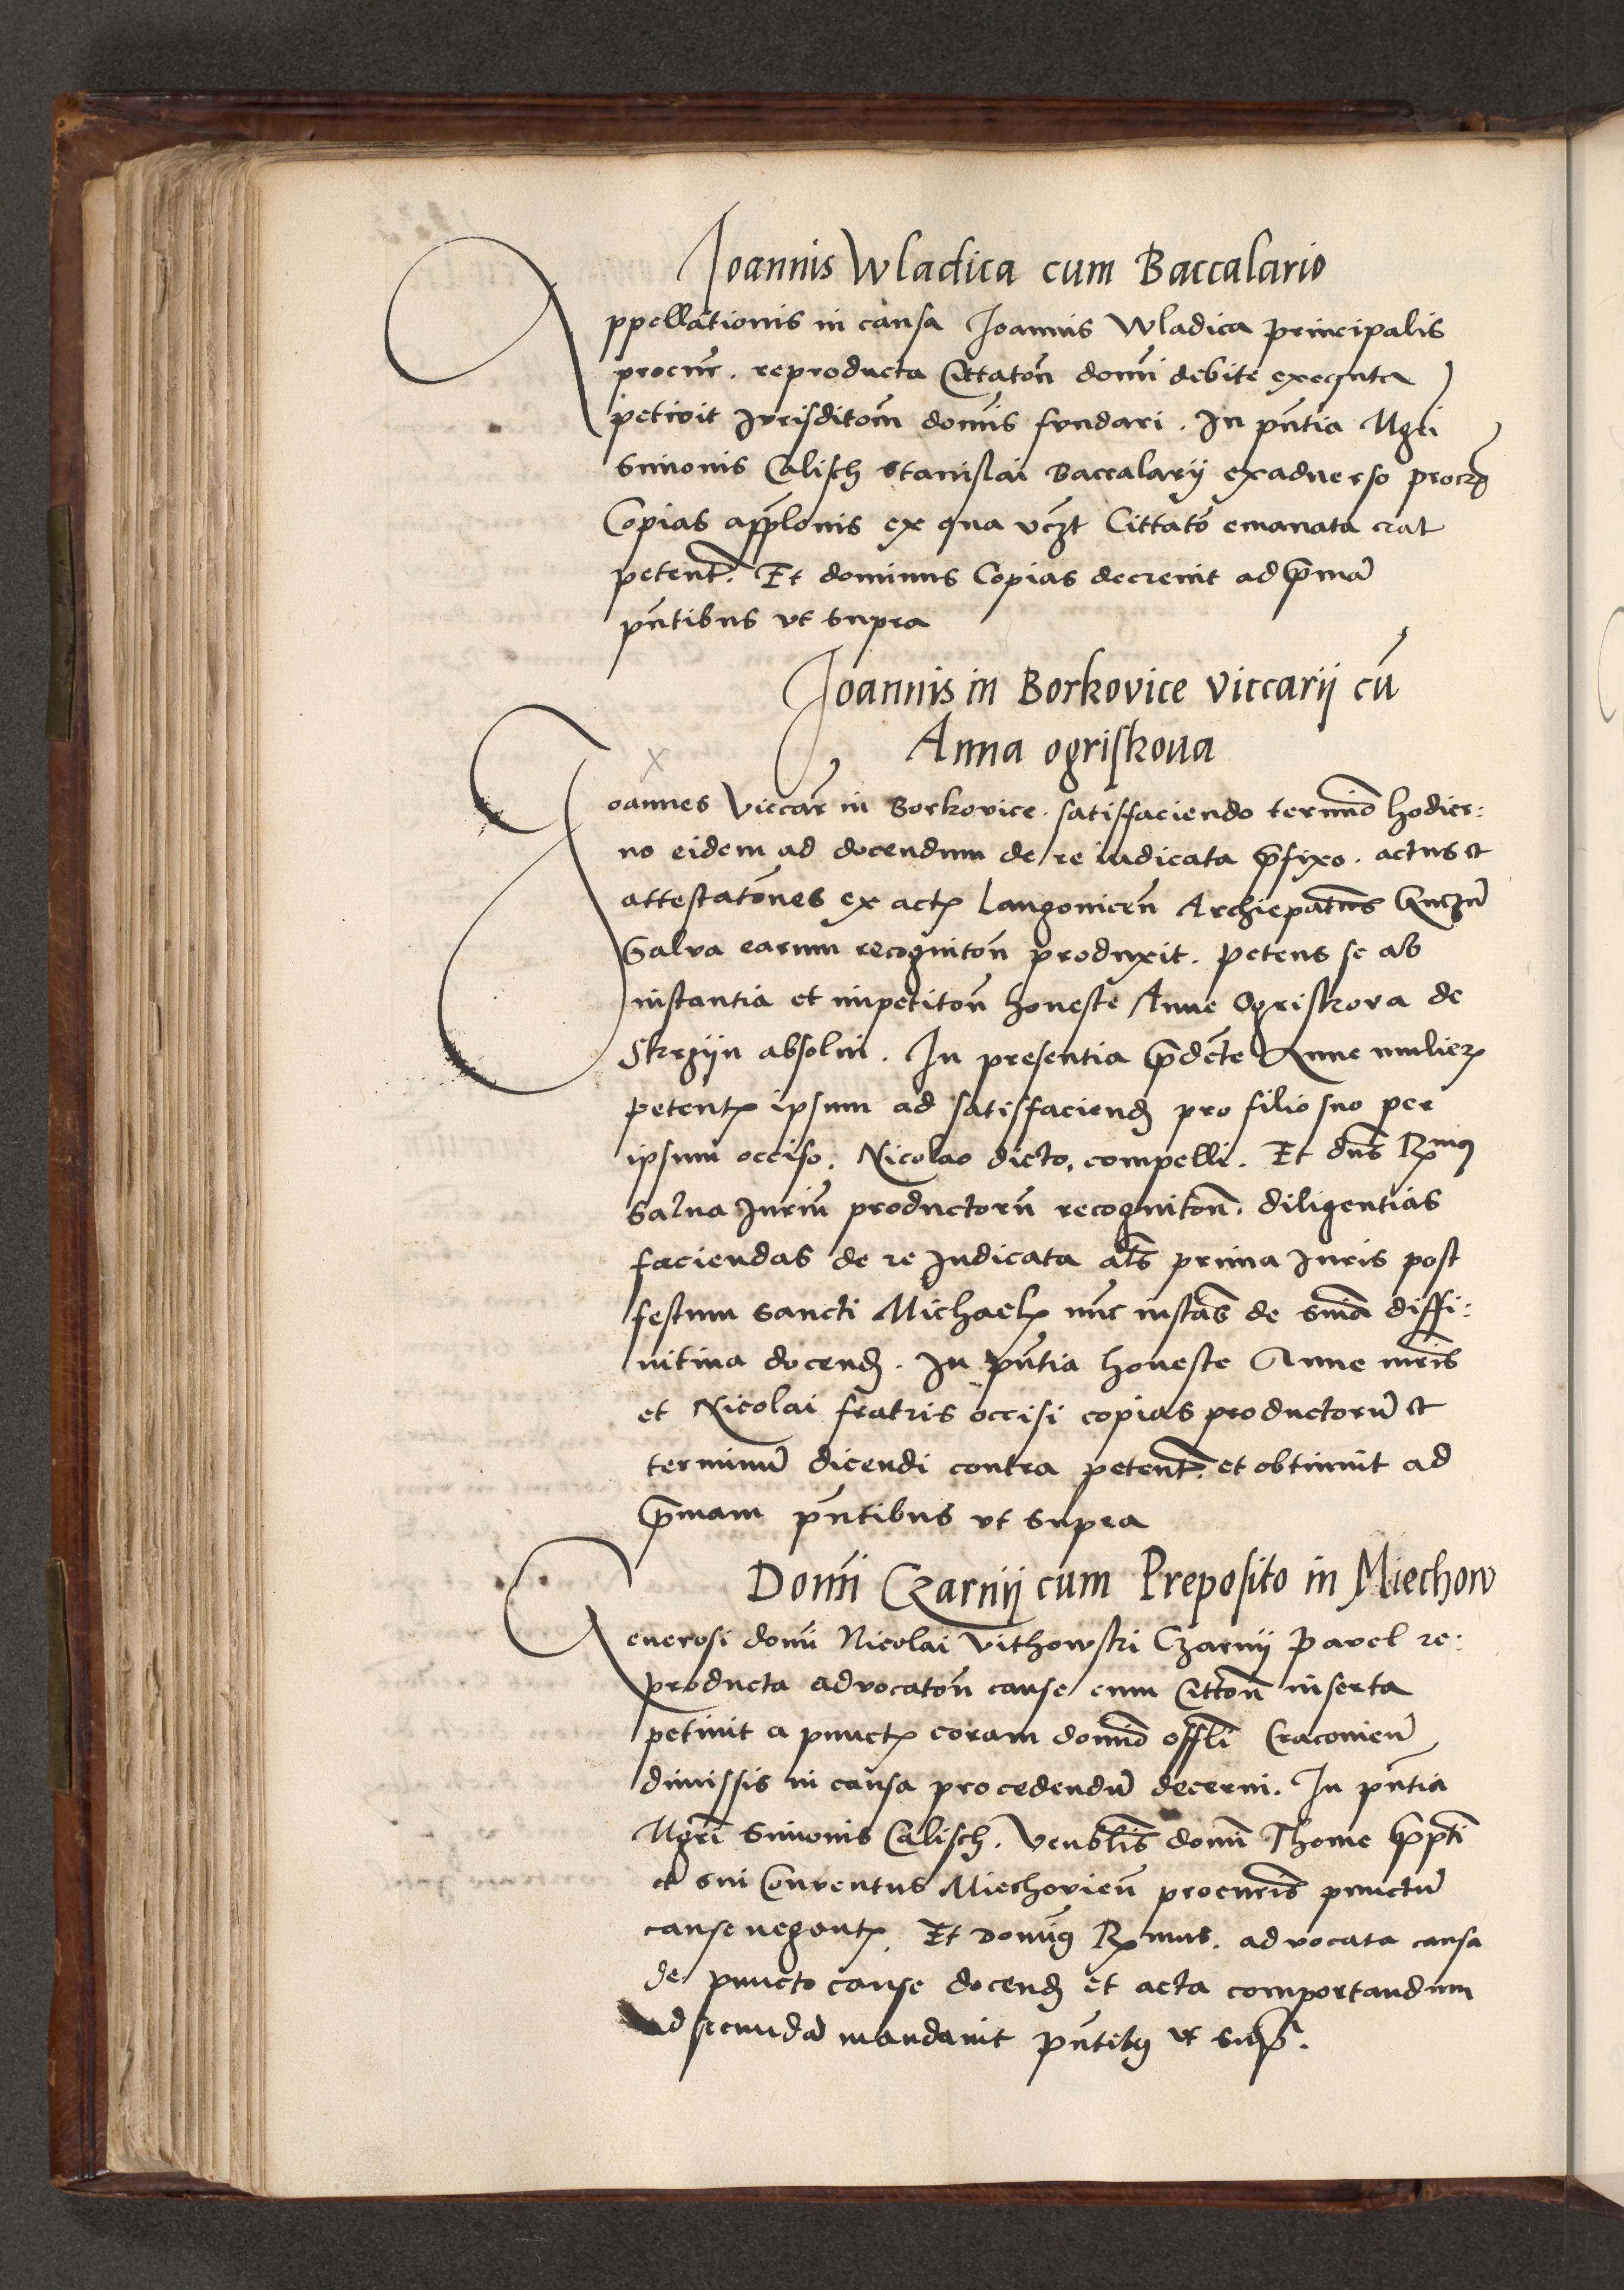 Joannis Wladica cum Baccalario
Appellationis in causa Joannis Wladica principalis
procur. reproducta Cittatoñ domi debite executa
petivit Jvrisditoem domis fvndari. In pñtia Mgri
Simonis Calisch Stanislai Baccalarij exadverso procris
Copias applonis ex qua vczt Cittato emanata erat
petent. Et dominus Copias decrevit ad pmã
pñtibus vt supra
Joannis in Borkovice Viccarij cũ
Anna ogriskova
Joannes Viccar in Borkovice. satisfaciendo termĩo hodier:
no eidem ad docendum de re iudicata pfixo. actus et
attestatones ex actis Langonicen Archiepatus Gnczn
Salva earum recogniton produxit. petens se ab
instantia et impetiton honeste Anne Ogriskova de
Skrzijn absolvi. In presentia pdcte Anne mulieris
petentis ipsum ad satisfaciend pro filio suo per
ipsum occiso. Nicolao dicto, compelli. Et dns Rmus
Salua Jurium productorũ recogniton. diligentias
faciendas de re Judicata als prima Juris post
festum Sancti Michaelis nũc instañs de snia diffi:
nitiua docend. In pñtia honeste Anne mris
et Nicolai fratris occisi copias productorũ et
terminũ dicendi contra petent. et obtinuit ad
pmam pñtibus vt supra
Domi Czarnij cum Preposito in Miechow
Generosi domi Nicolai Vithowski Czarnij Pavel re:
producta advocatoñ cause cum Cittoñ inserta
petiuit a punctis coram domĩo offli Cracovien
dimissis in causa procedendũ decerni. In pñtia
Mgri Simonis Calisch. Venblis domi Thome ppti
et sui Conventus Miechovien procuris punctũ
cause negentis. Et Domnus Rmus. advocata causa
de puncto cause docend et acta comportandum
ad secundã mandavit pñtibus vt sup.